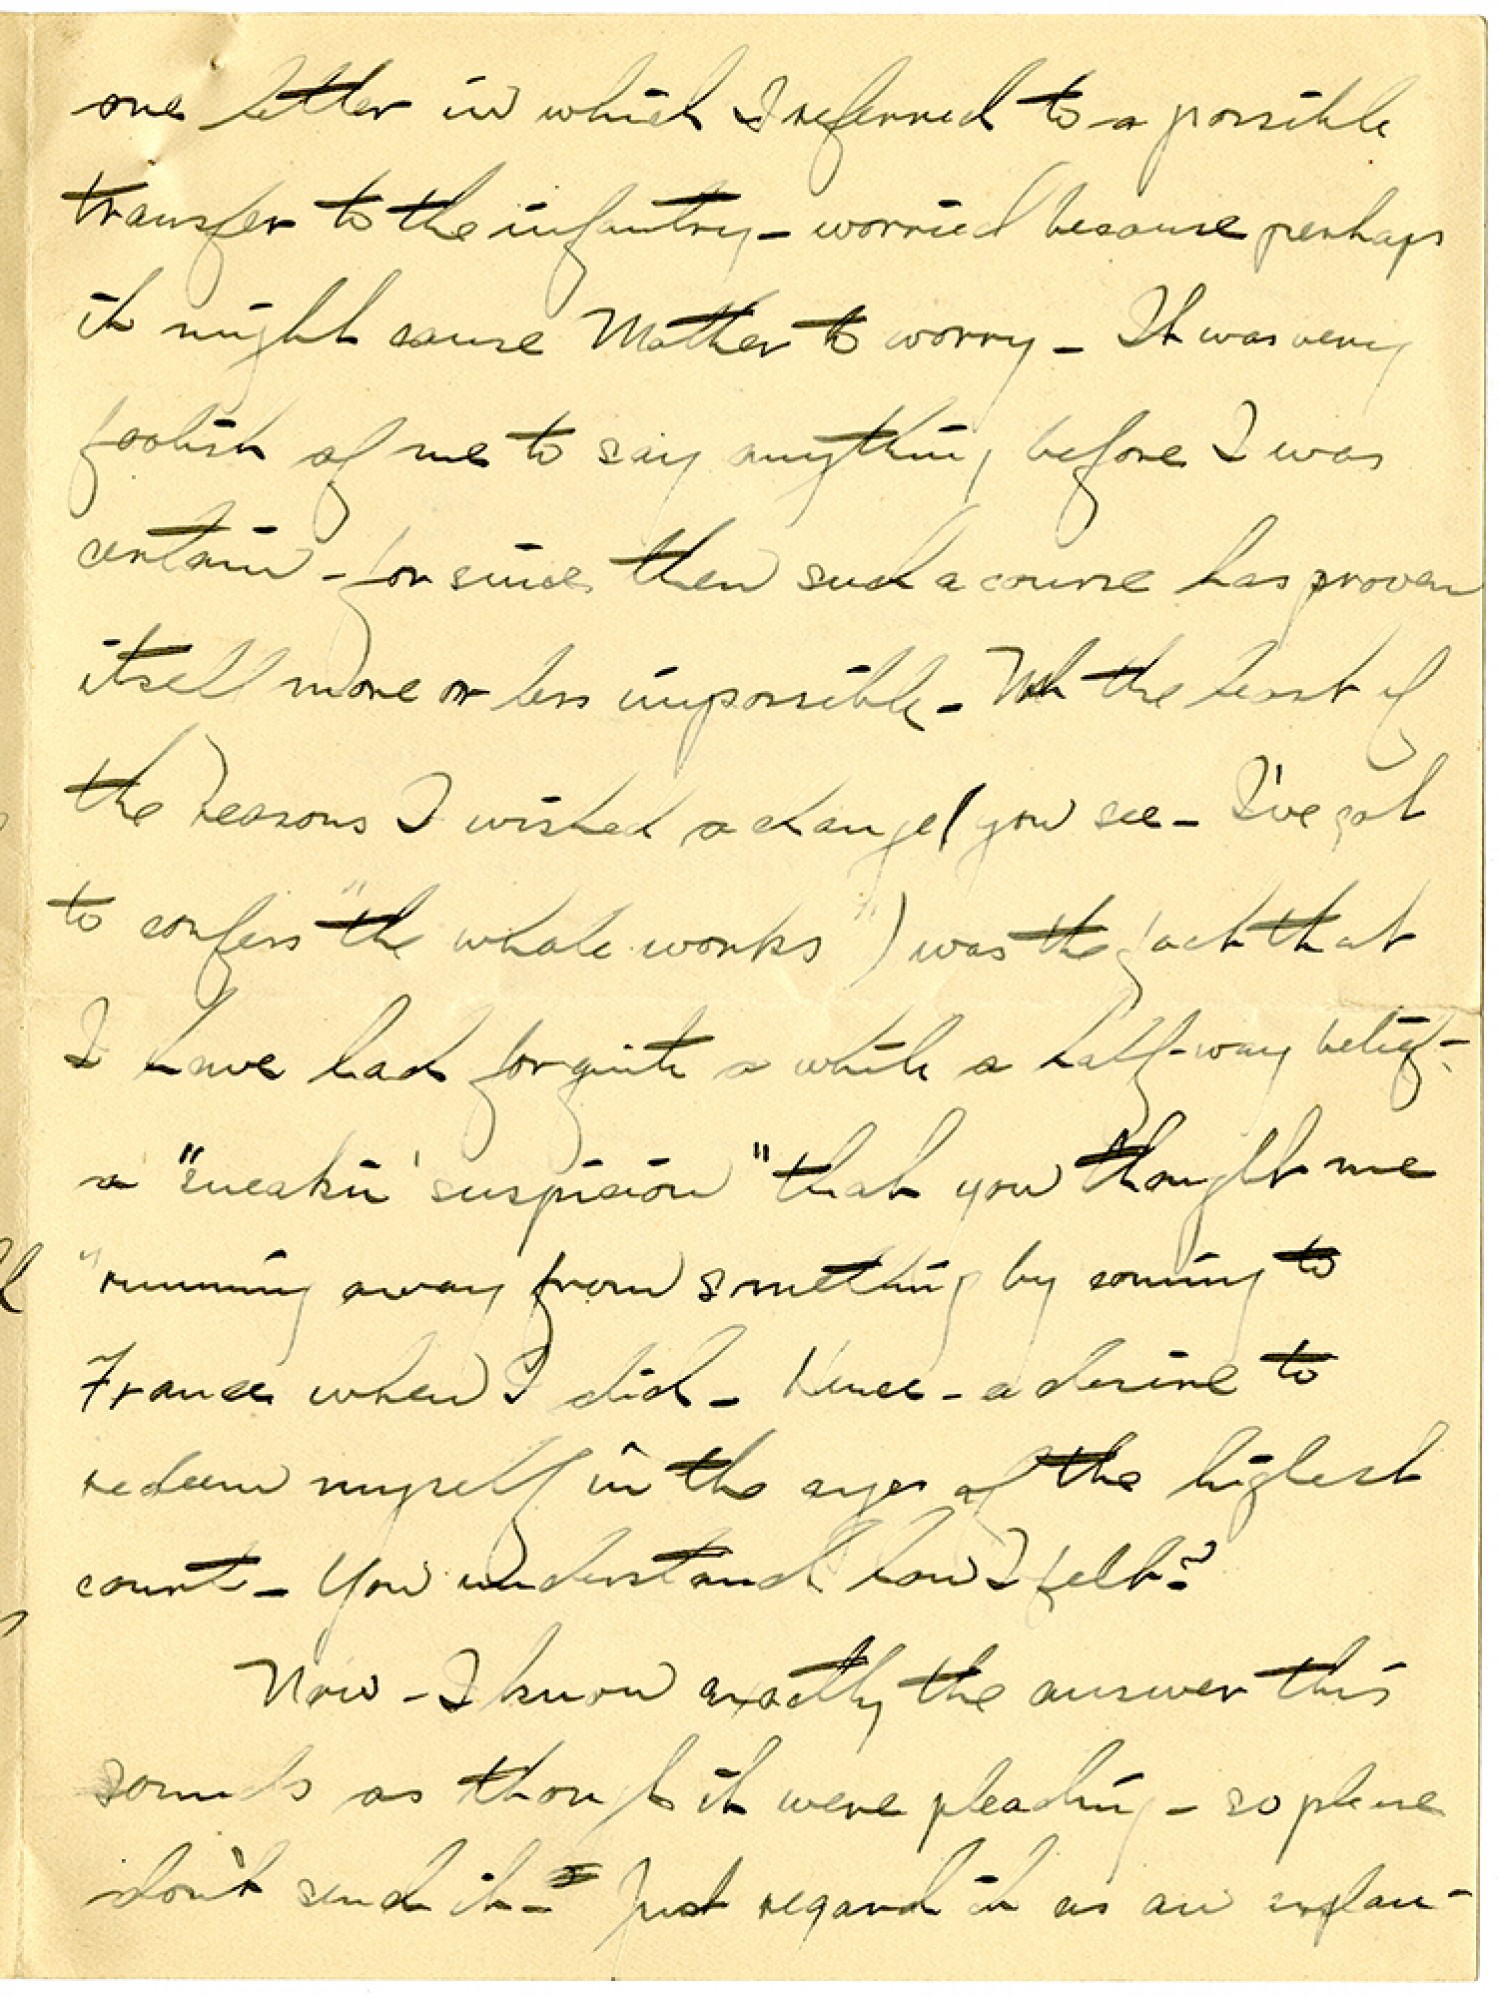 one letter in which I referred to a possible
transfer to the infantry - worried because perhaps
it might cause Mother to worry - It was very
foolish of me to say anything before I was
certain - for since then such a course has proven
itself more or less impossible - Not the least of
the reasons I wished a change (you see - I've got
to confess "the whole works") was the fact that
I have had for quite a while a half-way belief -
a "sneakin' suspicion" that you thought me
"running away from something by coming to
France when I did - Hence - a desire to
redeem myself in the eyes of the highest
court - You understand how I felt?
Now - I know exactly the answer this
sounds as though it were pleading - so please
don't send it - Just regard it as an explan-